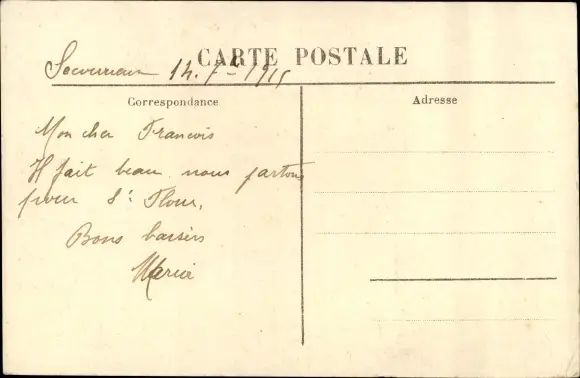 CARTE POSTALE
14. 7 - 1915
Correspondance
Adresse
Mon cher Francois
Il fait beau nous partons
pour St Flour,
Bons baisers
Maria